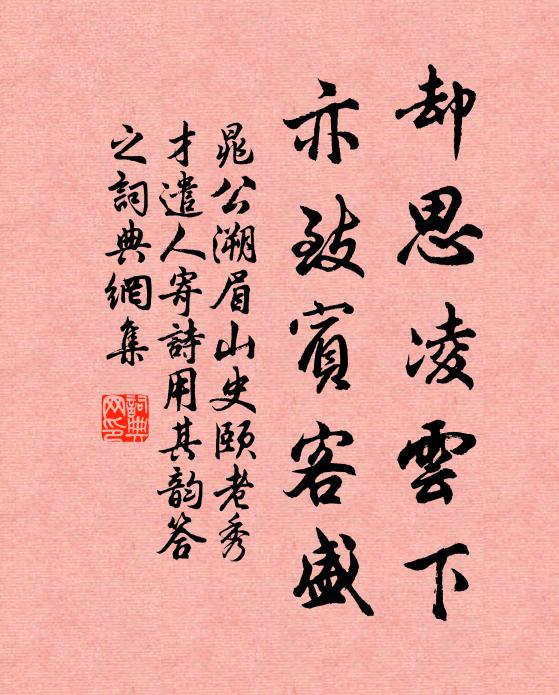 却思凌雲下
亦致賓客盛
晁公溯眉山史頤老秀
才遣人寄詩用其韵答
之詞典網集
詞典
网印